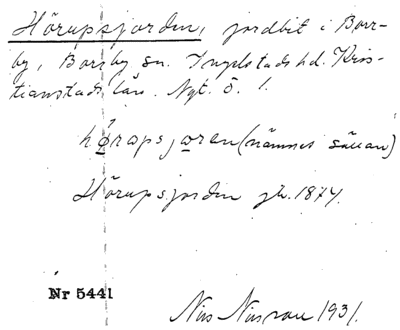 Hörupsjorden, jordbit i Borr-
by, Borrby sn. Ingelstads hd. Kris-
tianstads län. Nyt. ö. 1.
hörapsjoren (nämnes sällan)
Hörupsjorden gk. 1874.
Nr 5441
Nils 1931.